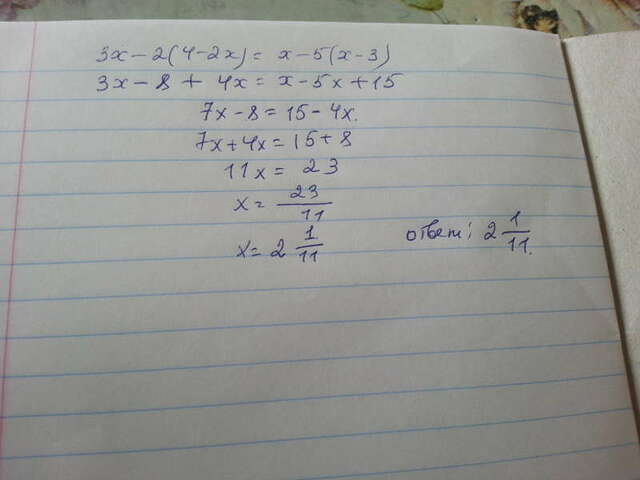 3x-2(4-2x)= x-5(x-3)
3x-8+4x=x-5x+15
7x-8=15-4x.
7x+4x=15+8
11x= 23
x= 23/11
x= 2 1/11
ответ: 2 1/11.